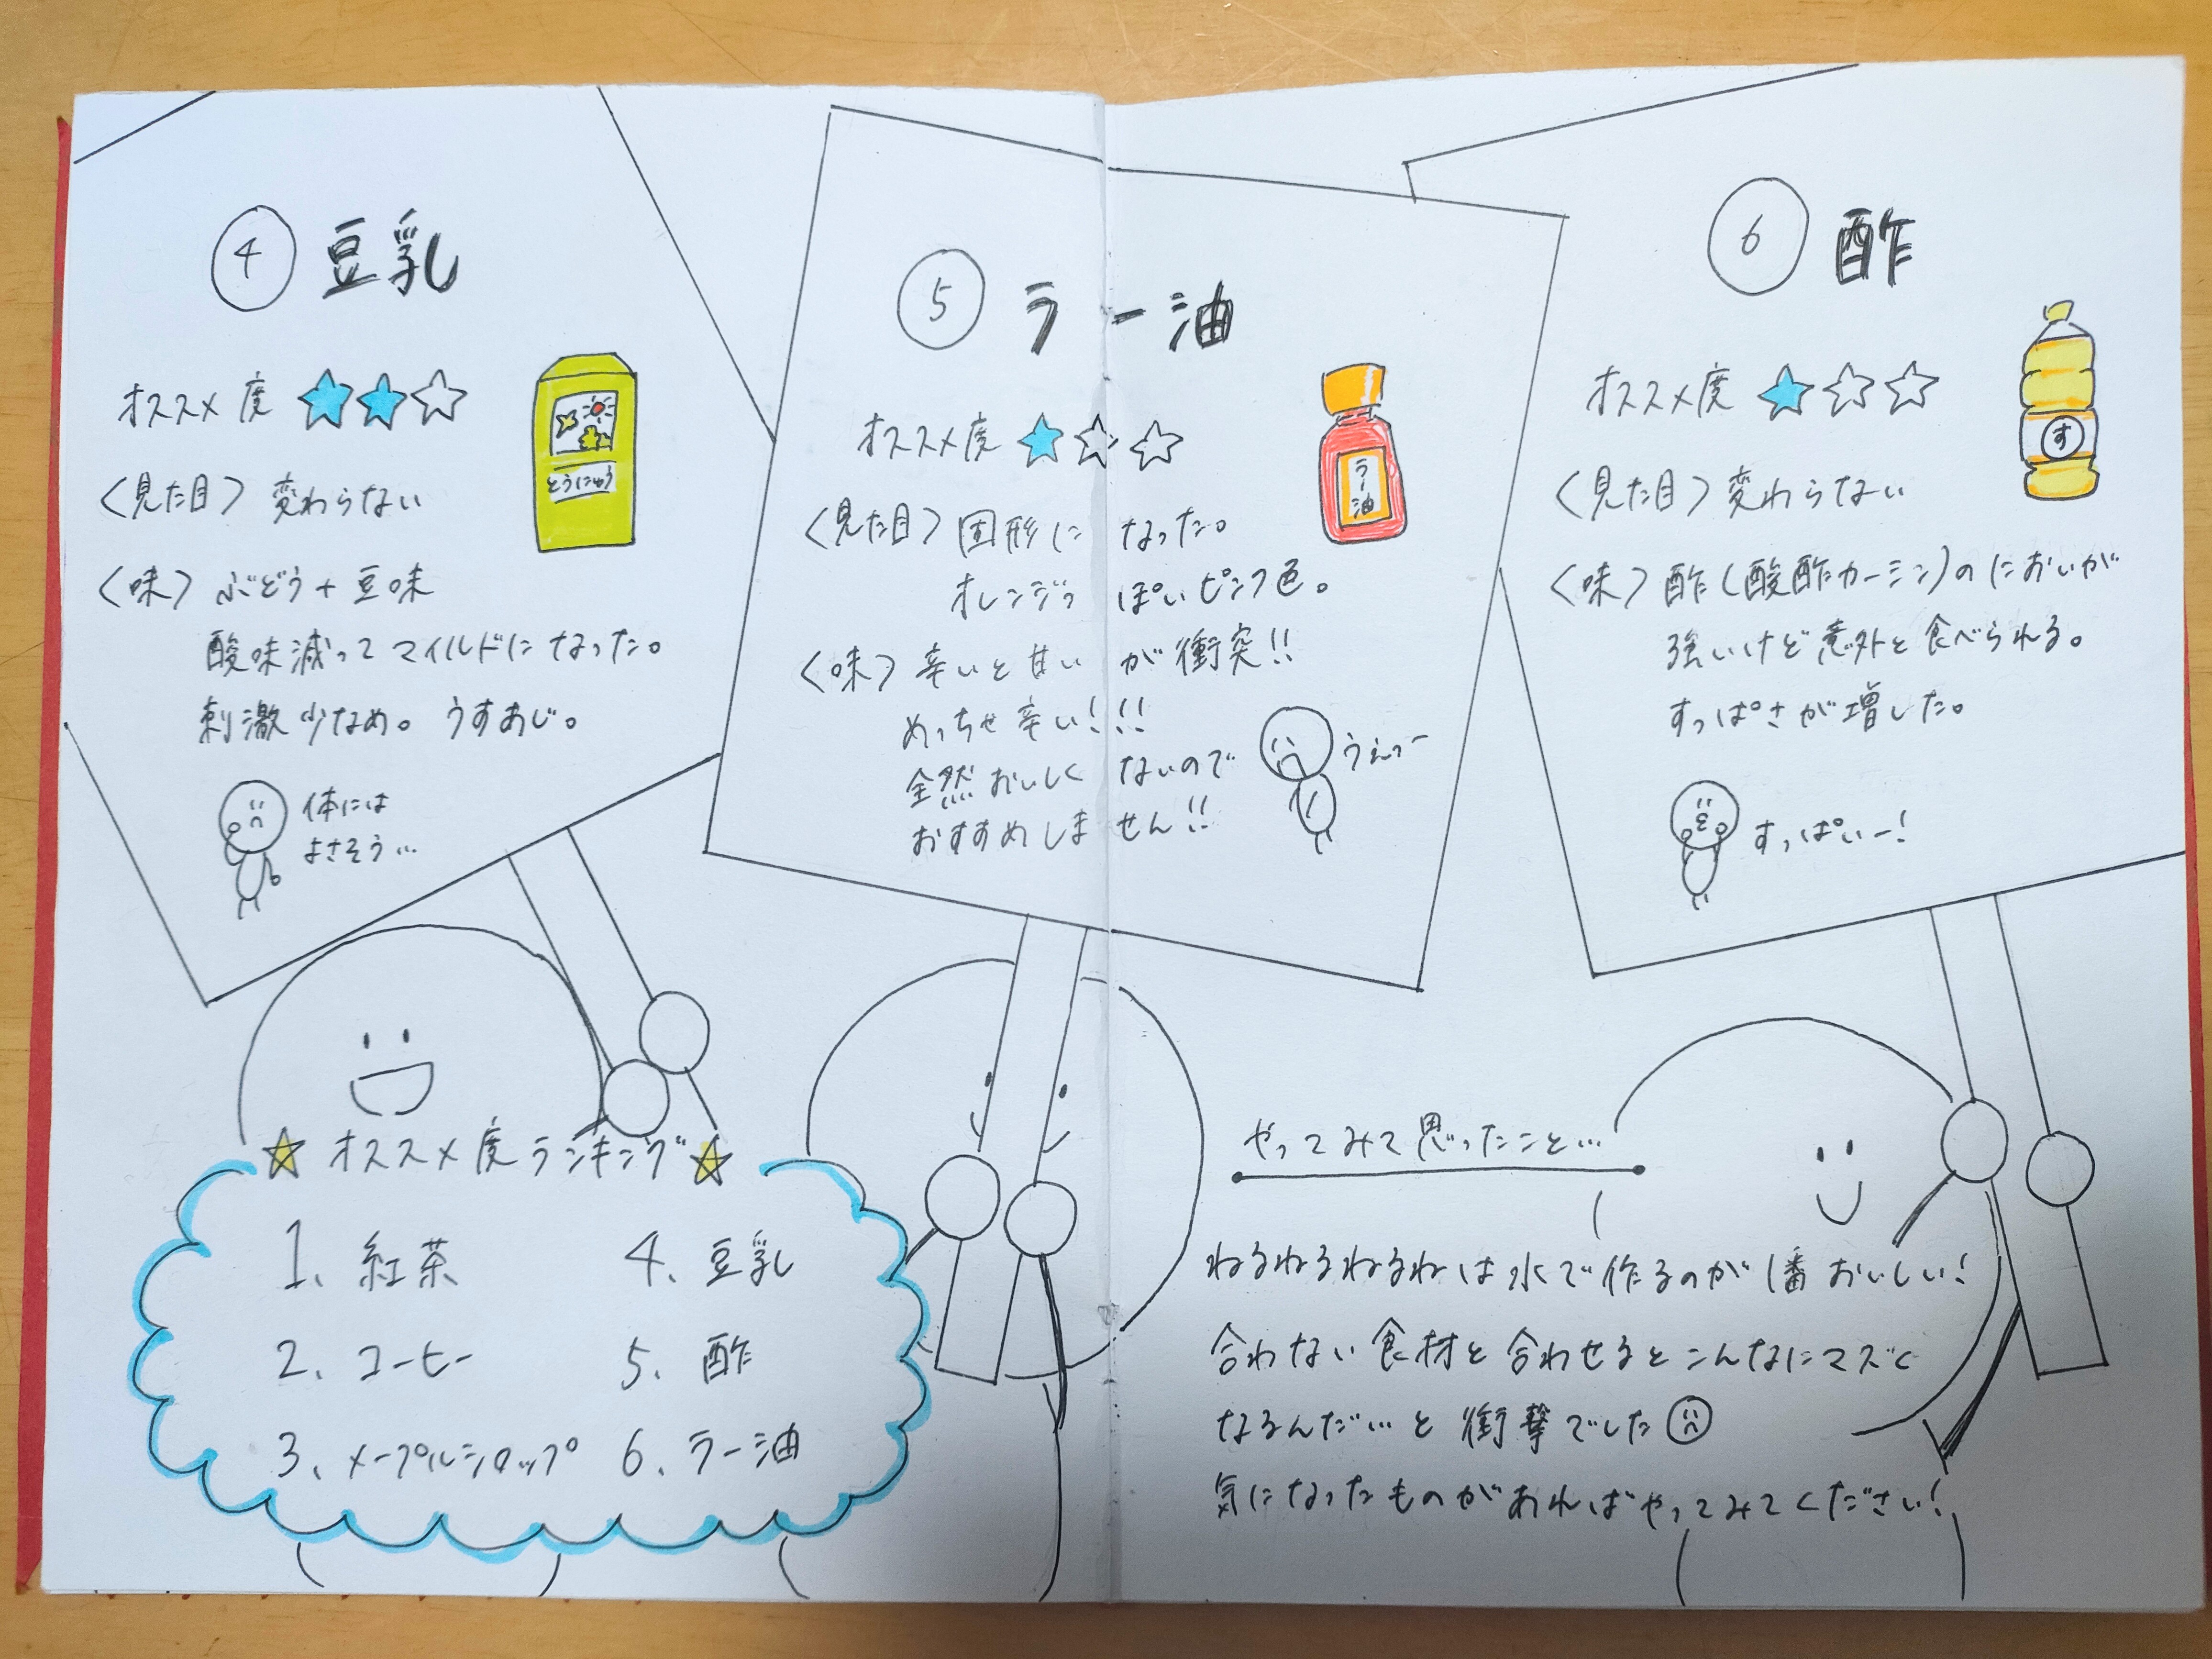 ④ 豆乳
オススメ度 ★★☆
とうにゅう
〈見た目〉変わらない
〈味〉ぶどう+豆味
酸味減ってマイルドになった。
刺激少なめ。うすあじ。
体には
よさそう…
⑤ ラー油
オススメ度 ★☆☆
ラー油
〈見た目〉固形になった。
オレンジっぽいピンク色。
〈味〉辛いと甘いが衝突!!
めっちゃ辛い!!!
全然おいしくないので
おすすめしません!!
うぇっー
⑥ 酢
オススメ度 ★☆☆
す
〈見た目〉変わらない
〈味〉酢(酸酢カーミン)のにおいが
強いけど意外と食べられる。
すっぱさが増した。
すっぱいー!
☆オススメ度ランキング☆
1、紅茶
2、コーヒー
3、メープルシロップ
4、豆乳
5、酢
6、ラー油
やってみて思ったこと…
ねるねるねるねは水で作るのが1番おいしい!
合わない食材と合わせるとこんなにマズく
なるんだ…と衝撃でした
気になったものがあればやってみてください!